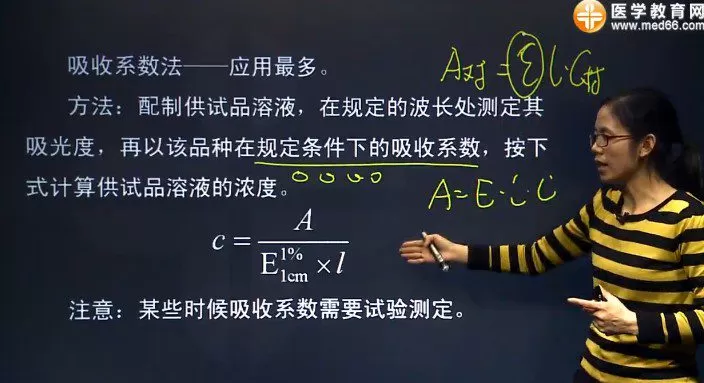 医学教育网
www.med66.com
吸收系数法——应用最多。
A对=E l·C对
方法：配制供试品溶液，在规定的波长处测定其
吸光度，再以该品种在规定条件下的吸收系数，按下
式计算供试品溶液的浓度。
A=E·l·C
c = A / (E1%1cm × l)
注意：某些时候吸收系数需要试验测定。